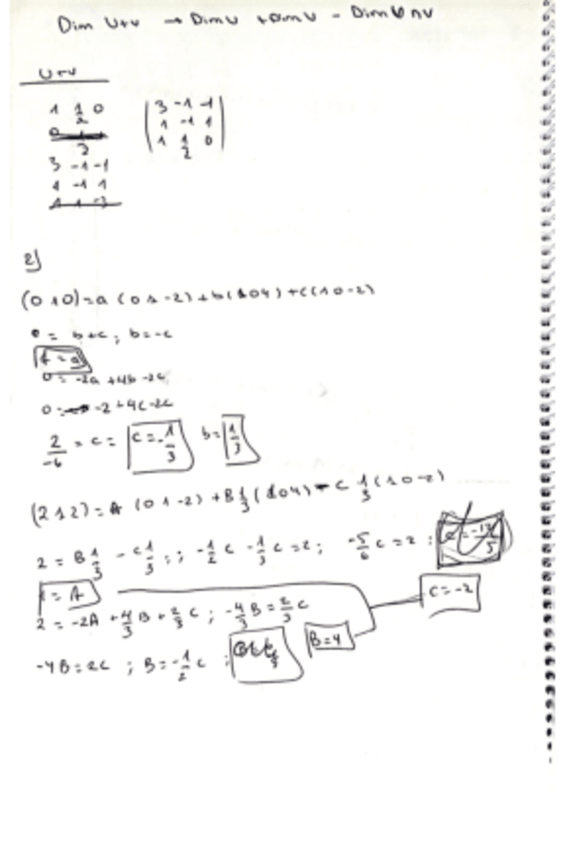 Dim U+V → Dim U + Dim V - Dim U∩V
U+V
1 1/2 0
3 -1 -1
1 -1 1
(3 -1 -1
1 -1 1
1 1/2 0)
2)
(0 1 0) = a (0 1 -2) + b (1 0 4) + c (1 0 -2)
0 = b+c ; b = -c
0 = -2a + 4b - 2c
0 = -2 - 4c - 2c
2/-6 = c = c = -1/3 b = 1/3
(2 1 2) = A (0 1 -2) + B 1/3 (1 0 4) - C 1/3 (1 0 -2)
2 = B 1/3 - C 1/3 ; -1/2 C - 1/3 C = 2 ; -5/6 C = 2 :
1 = A
C = -2
2 = -2A + 4/3 B + 2/3 C ; -4/3 B = 2/3 C
B = 4
-4B = 2C ; B = -1/2 C ;